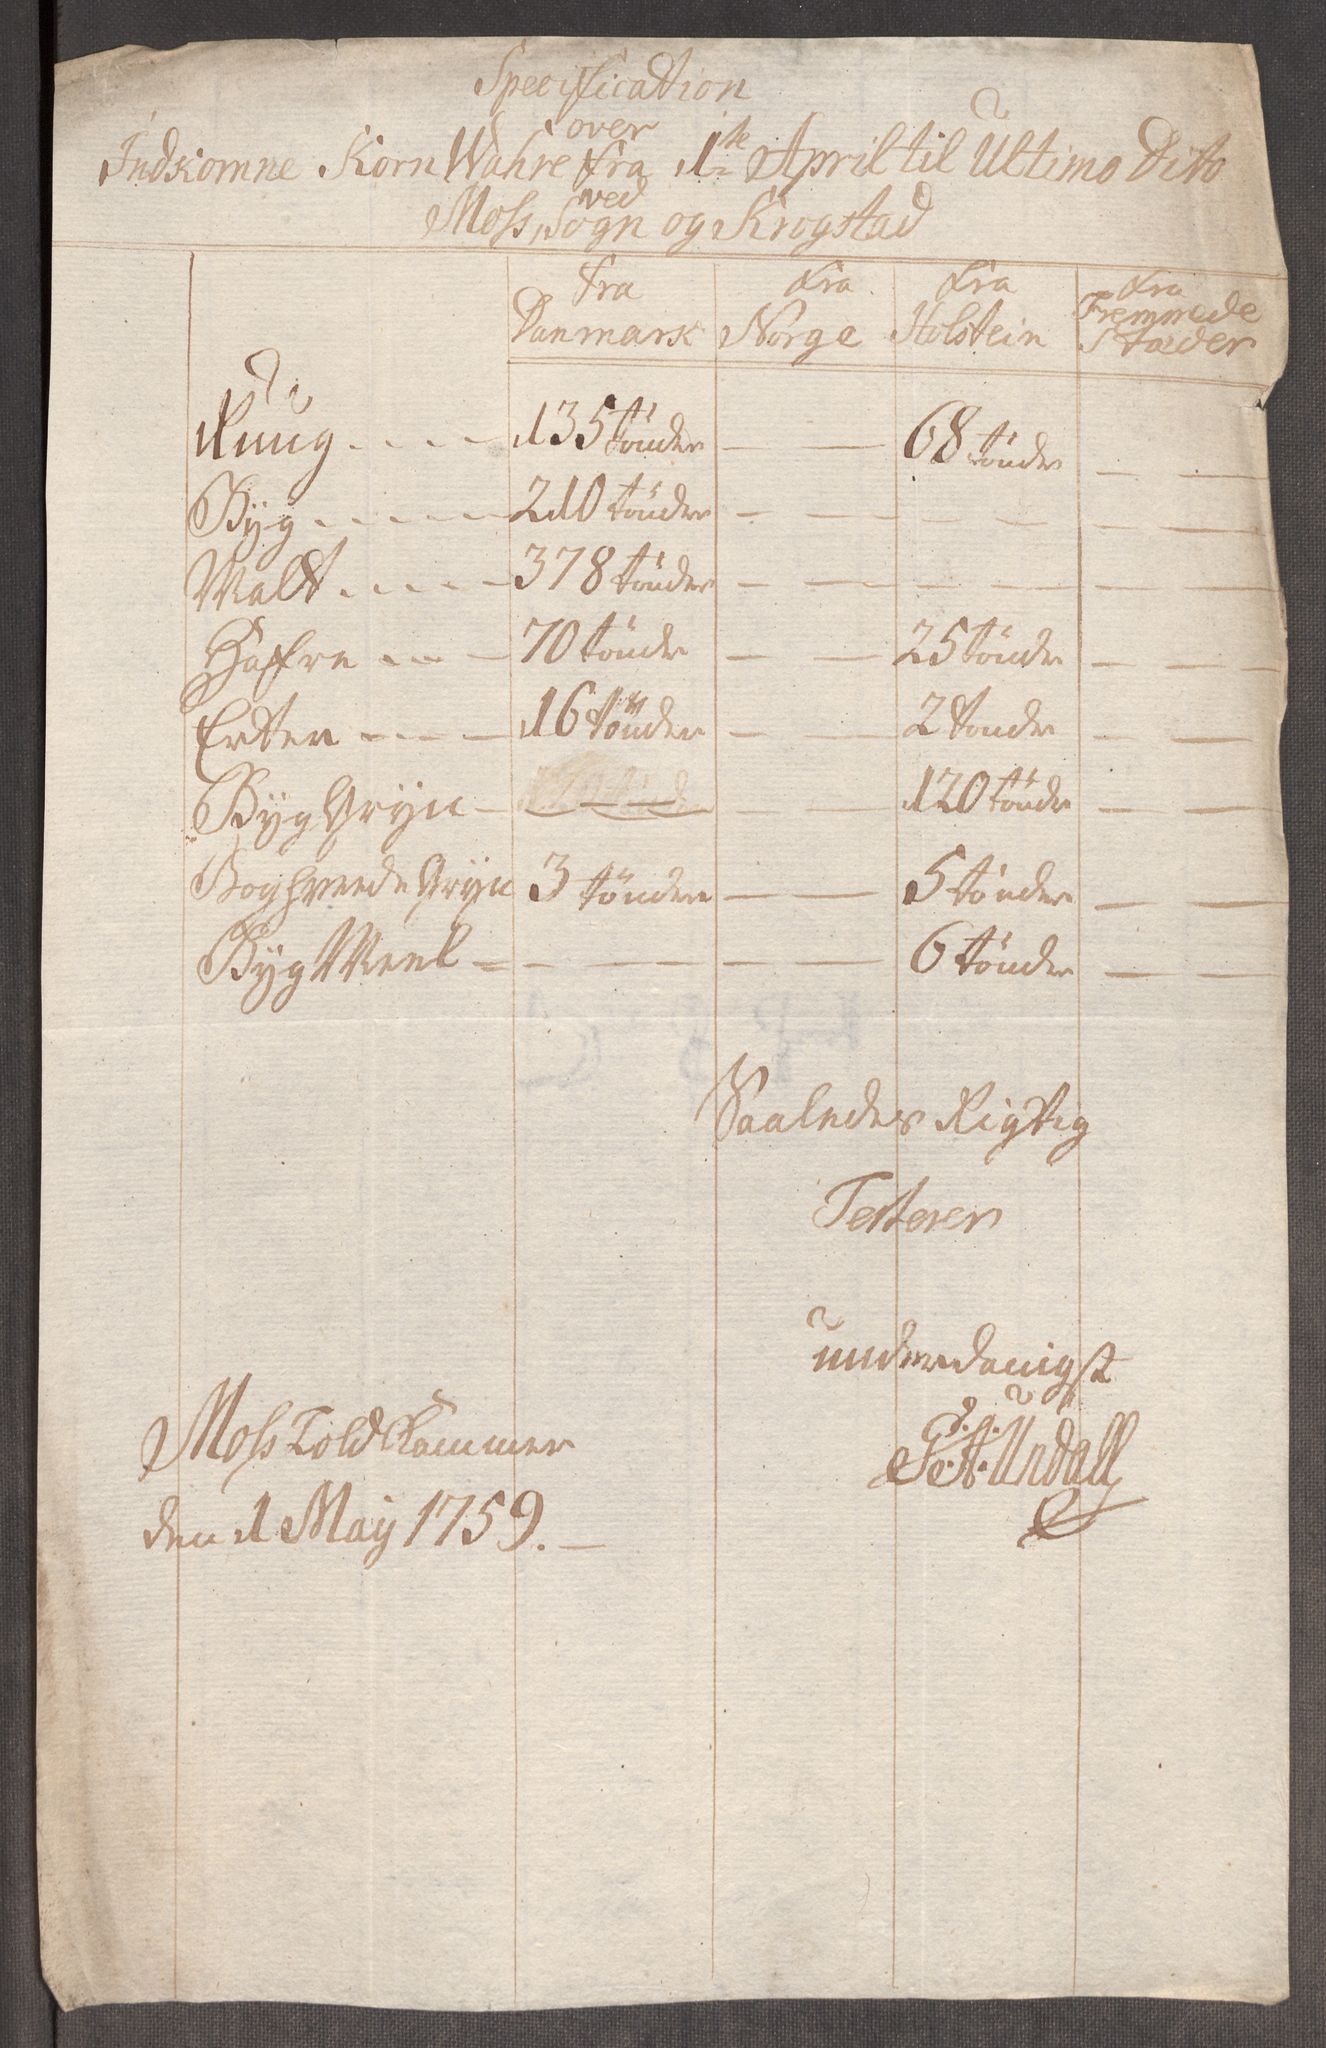 Specification
over
Indkomne Korn Wahre fra 1te April til Ultimo Dito
ved
Moss, Sogn og Krogstad
fra Danmark fra Norge fra Holstein fra Fremmede Stæder
Ruug . . . . — 135 tönder — — 68 tönder — —
Byg . . . . . — 210 tönder — — — — — —
Malt . . . . — 378 tönder — — — — — —
Haffre — — — 70 tönder — — 25 tönder — —
Erter — — — 16 tönder — — 2 tönder — —
Byg Gryn — — — — — 120 tönder — —
Boghvede Gryn 3 tönder — — 5 tönder — —
Byg Meel — — — — — 6 tönder — —
Saaledes Rigtig
Testerer
underdanigst
Moss Told Kammer
Urdall
den 1 May 1759. —